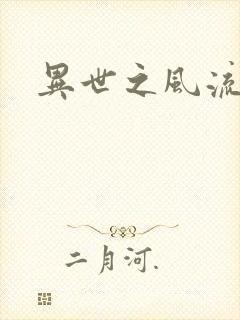 異世之風流
二月河.